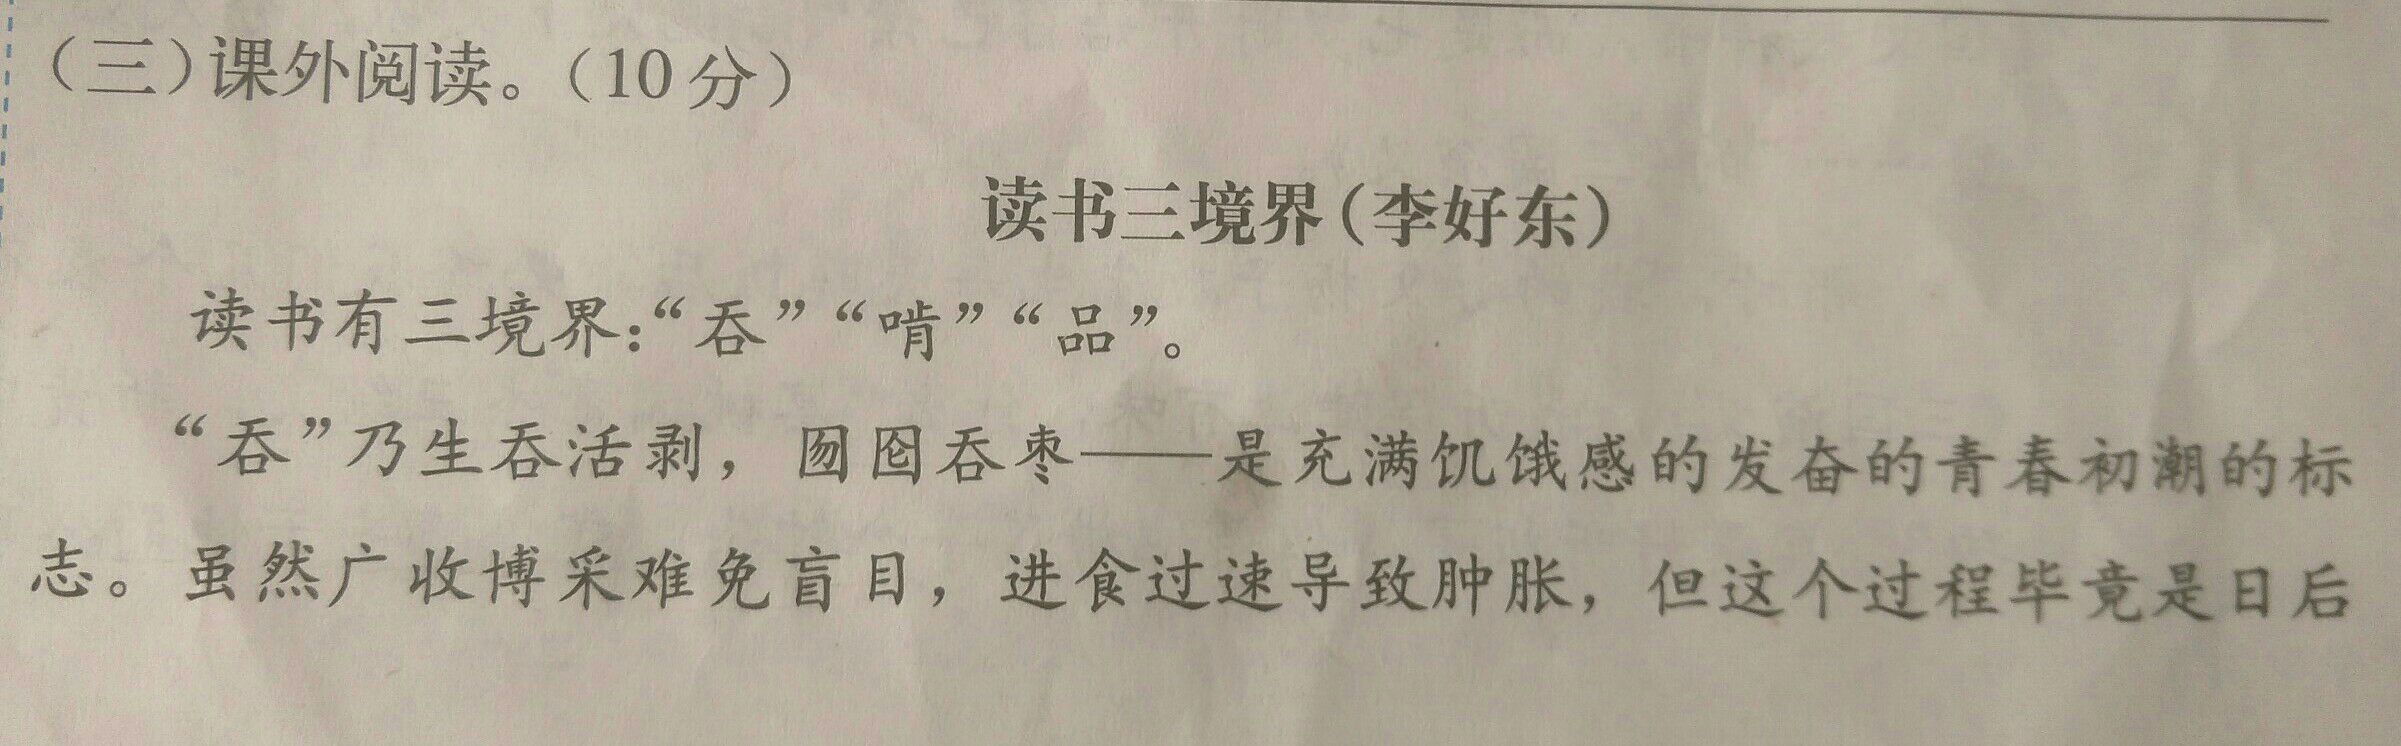 （三）课外阅读。（10分）
读书三境界（李好东）
读书有三境界：“吞”“啃”“品”。
“吞”乃生吞活剥，囫囵吞枣——是充满饥饿感的发奋的青春初潮的标
志。虽然广收博采难免盲目，进食过速导致肿胀，但这个过程毕竟是日后